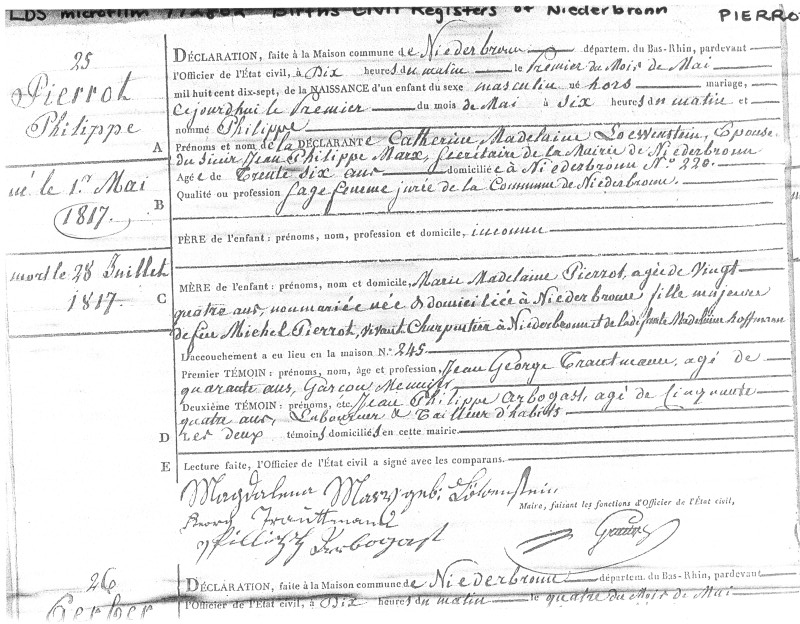 LDS microfilm Births Civil Registers of Niederbronn PIERROT
25
Pierrot
Philippe
A
né le 1er Mai
1817.
B
mort le 28 Juillet
1817. C
D
E
DÉCLARATION, faite à la Maison commune de Niederbronn départem. du Bas-Rhin, pardevant
l'Officier de l'État civil, à Dix heures du matin le Premier du Mois de Mai
mil huit cent dix-sept, de la NAISSANCE d'un enfant du sexe masculin né hors mariage,
cejourdhui le Premier du mois de Mai à Six heures du matin et
nommé Philippe
Prénoms et nom de la DÉCLARANTe Catherine Madelaine Loewenstein, Epouse
du Sieur Jean Philippe Marx, Secritaire de la Mairie de Niederbronn
Agée de Trente Six ans domiciliée à Niederbronn N° 220.
Qualité ou profession Sage femme jurée de la Commune de Niederbronn.
PÈRE de l'enfant : prénoms, nom, profession et domicile, inconnu
MÈRE de l'enfant : prénoms, nom et domicile, Marie Madelaine Pierrot, agée de Vingt
quatre ans, non mariée née & domiciliée à Niederbronn fille majeure
de feu Michel Pierrot, vivant Charpentier à Niederbronn et de la défunte Madelaine Hoffmann
L'accouchement a eu lieu en la maison N.° 245.
Premier TÉMOIN : prénoms, nom, âge et profession, Jean George Trautmann, agé de
quarante ans, Garçon Meunier,
Deuxième TÉMOIN : prénoms, etc. Jean Philippe Arbogast, agé de Cinquante
quatre ans, Laboureur & Tailleur d'habits
Les deux témoins domiciliés en cette mairie.
Lecture faite, l'Officier de l'État civil a signé avec les comparans.
Magdalena Marx geb: Löwenstein
Maire, faisant les fonctions d'Officier de l'État civil,
Georg Trauttmann
Arbogast
26
Gerber
DÉCLARATION, faite à la Maison commune de Niederbronn départem. du Bas-Rhin, pardevant
l'Officier de l'État civil, à Dix heures du matin le quatre du Mois de Mai